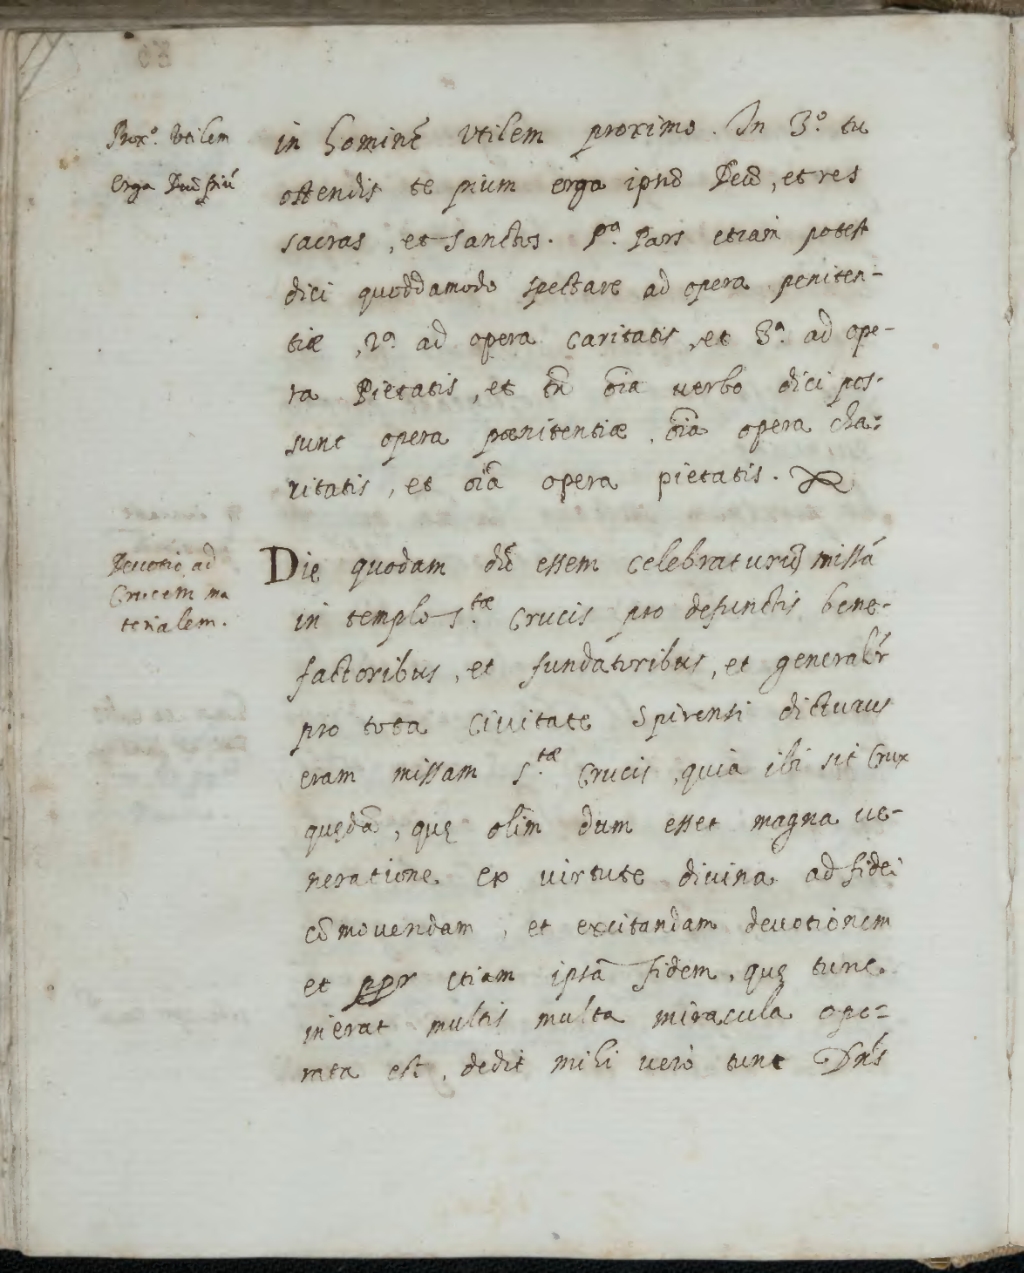 Prox.º Vtilem
Erga Deũ piũ
in hominẽ Vtilem proximo. In 3.º tu
ostendis te pium erga ipsũ Deũ, et res
sacras, et sanctos. Pª. Pars etiam potest
dici quoddamodo spectare ad opera peniten-
tiæ, 2ª. ad opera caritatis, et 3ª. ad ope-
ra Pietatis, et tñ oĩa uerbo dici pos-
sunt opera pœnitentiæ, oĩa opera cha-
ritatis, et oĩa opera pietatis.
Deuotio ad
Crucem ma
terialem.
Die quodam dũ essem celebraturus missã
in templo S.tæ Crucis pro defunctis bene-
factoribus, et fundatoribus, et generalr̃
pro tota Ciuitate Spirensi dicturus
eram missam S.tæ Crucis, quia ibi sit Crux
quędã, quę olim dum esset magna ue-
neratione ex virtute diuina ad fidei
cõmouendam, et excitandam deuotionem
et ppr etiam ipsã fidem, quę tunc
inerat multis multa miracula ope-
rata est, dedit mihi uerò tunc Dñs